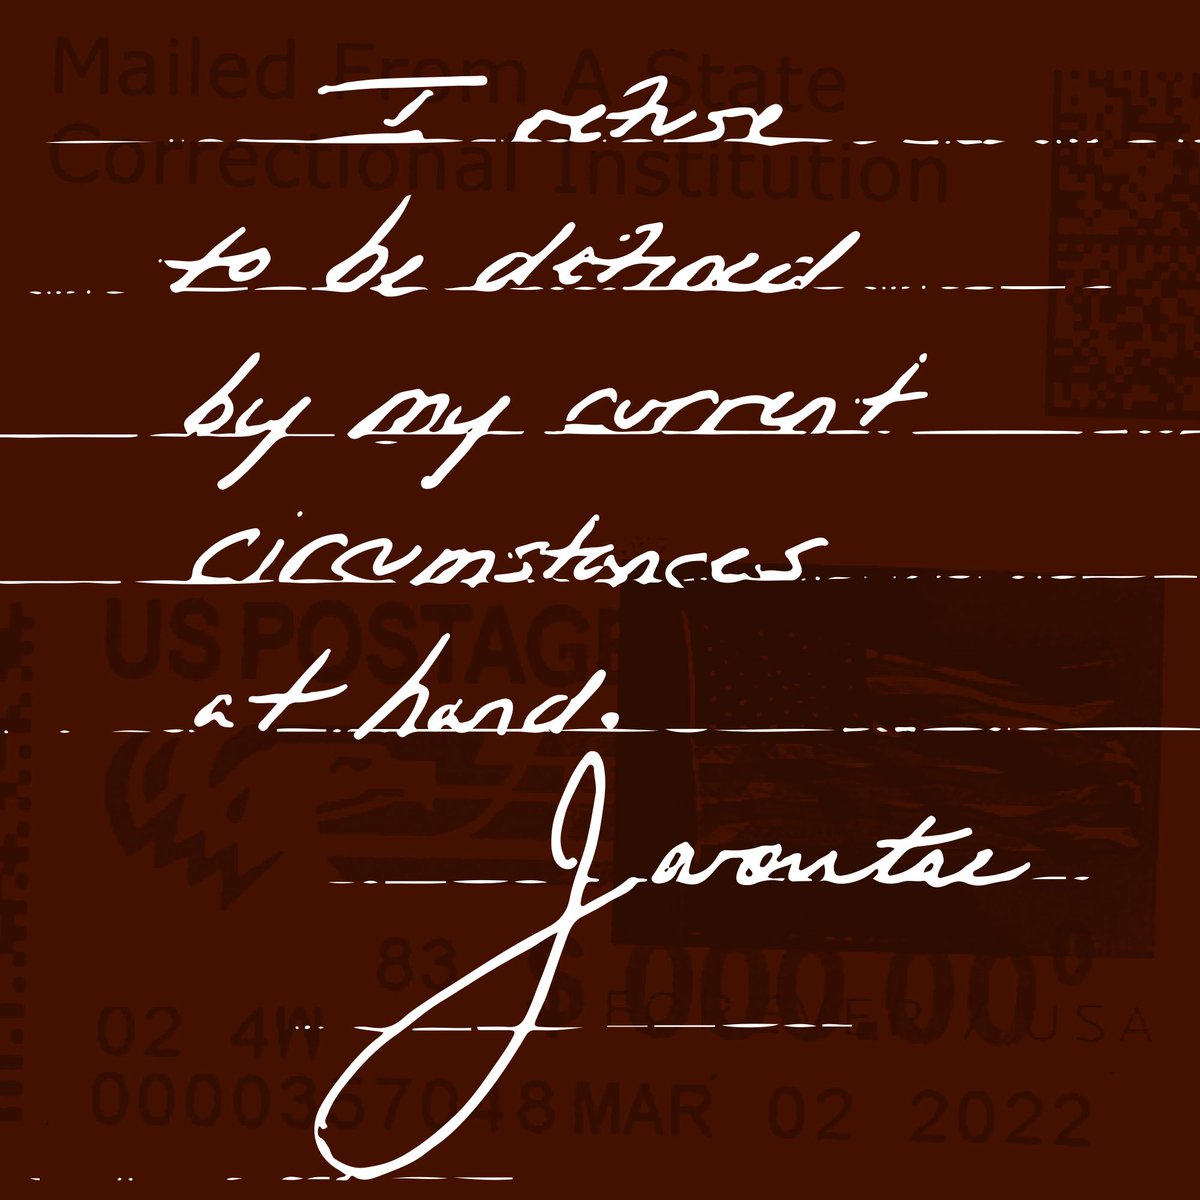 Mailed From A State
Correctional Institution
I refuse
to be defined
by my current
circumstances
at hand.
US POSTAGE
Javontae
83
$ 000.00⁰
FOREVER / USA
02 4W
0000367048 MAR 02 2022